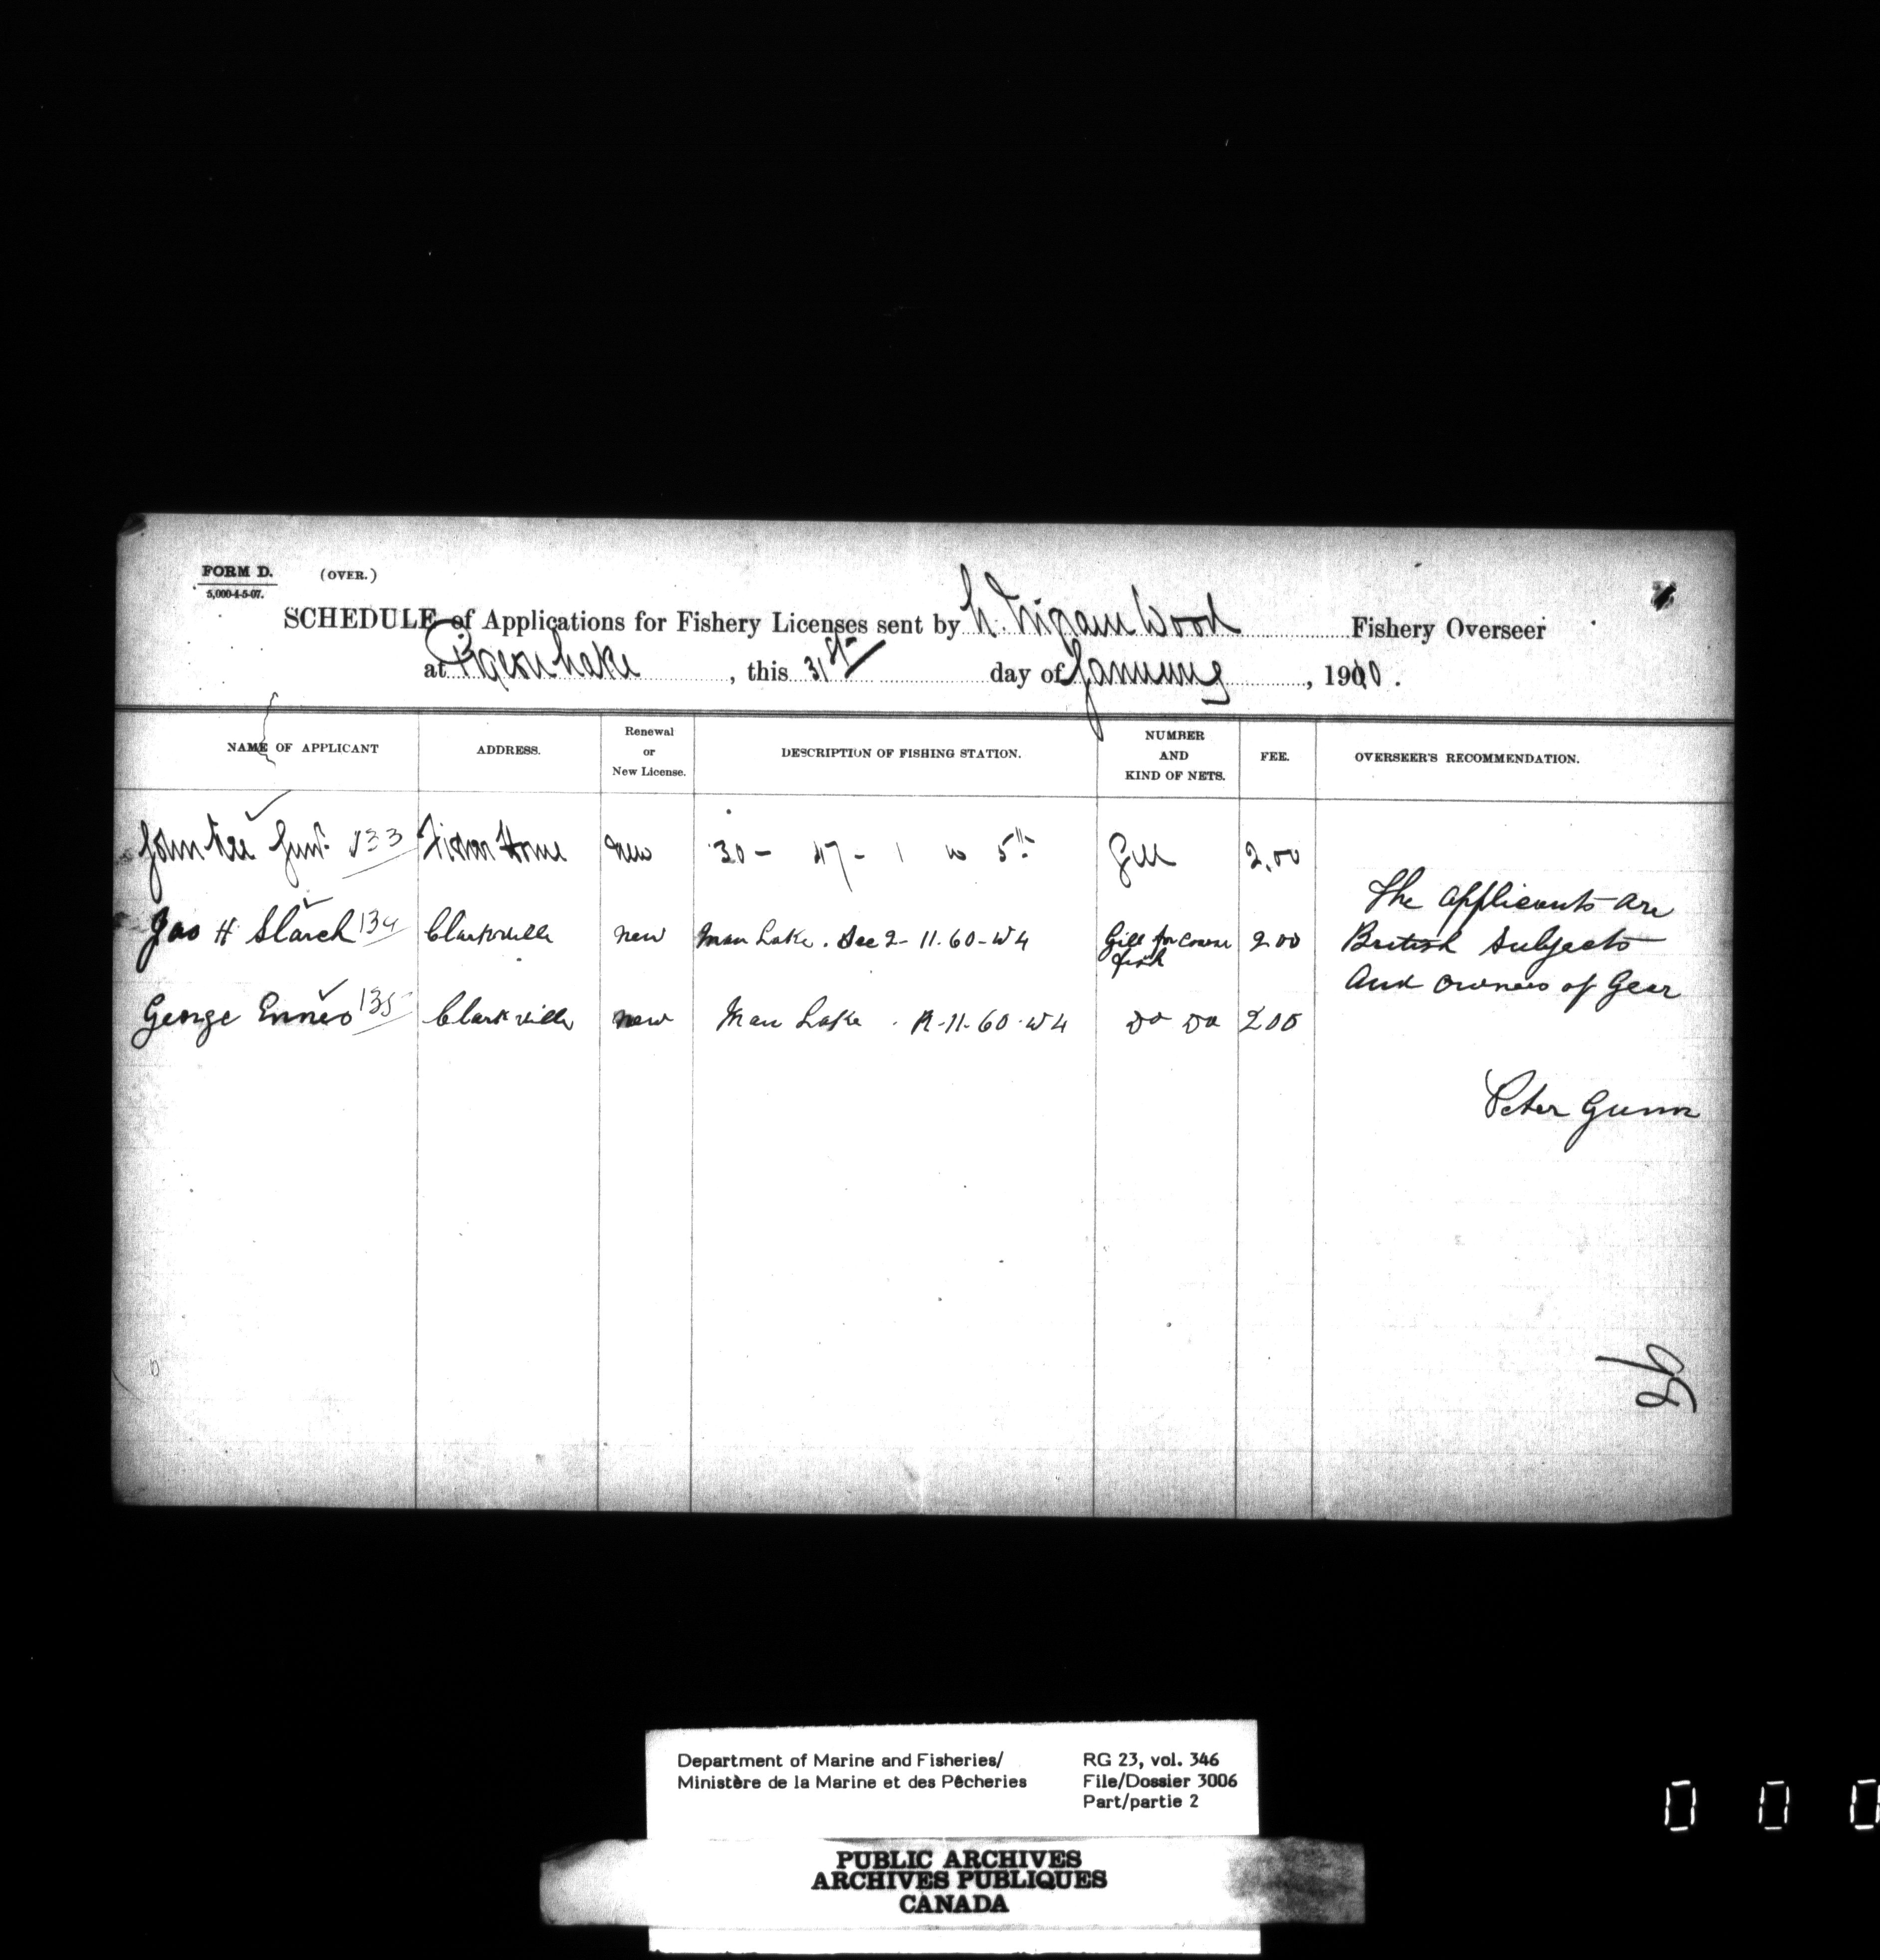 FORM D. (OVER.)
5,000-4-5-07.
SCHEDULE of Applications for Fishery Licenses sent by Wood Fishery Overseer
at Pigeon Lake, this 31st day of January, 1910.
NAME OF APPLICANT ADDRESS. Renewal or New License. DESCRIPTION OF FISHING STATION. NUMBER AND KIND OF NETS. FEE. OVERSEER'S RECOMMENDATION.
John 133 Home new 30 - 47 - 1 w 5th Gill 2.00
Jas H Starch 134 Clarkville new Man Lake. Sec 2-11.60-W4 Gill for coarse fish 2.00
George Ennes 135 Clarkville new Man Lake. R-11-60-W4 Do Do 2.00
The applicants are
British subjects
and owners of Gear
Peter Gunn
98
Department of Marine and Fisheries/
Ministère de la Marine et des Pêcheries
RG 23, vol. 346
File/Dossier 3006
Part/partie 2
PUBLIC ARCHIVES
ARCHIVES PUBLIQUES
CANADA
0 0 0